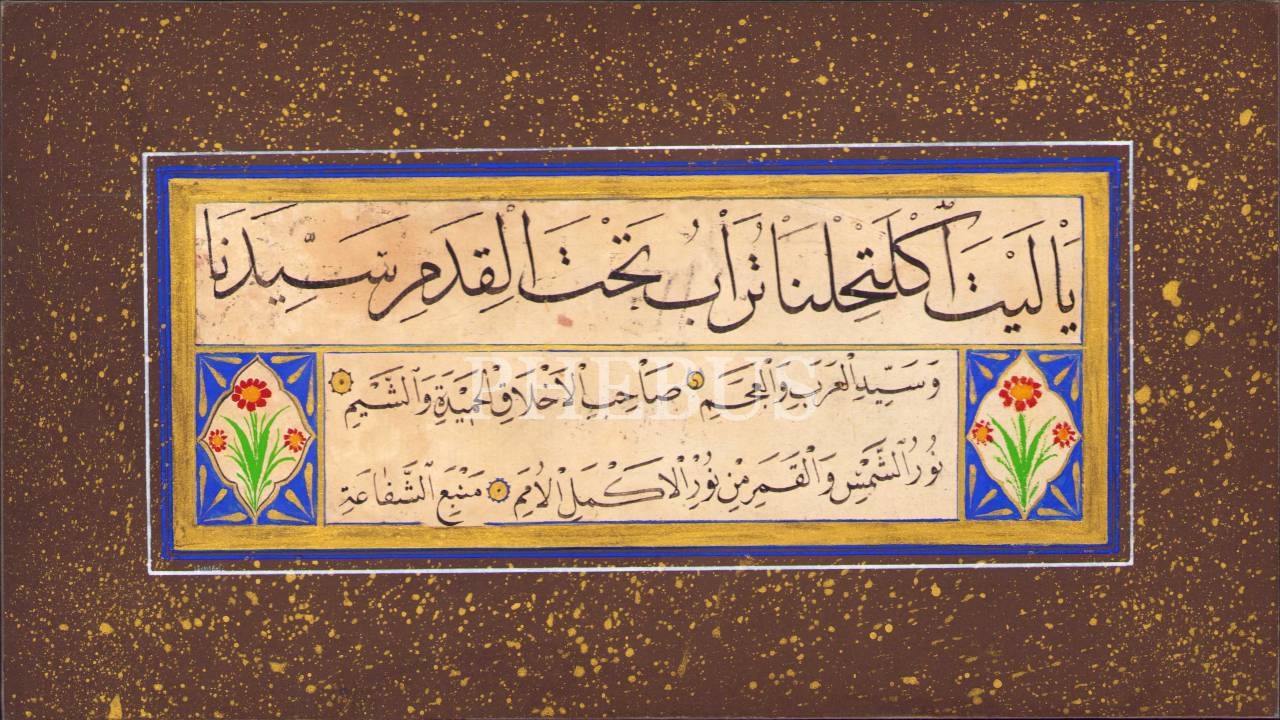 يَا لَيْتَ اَكْتَحَلْنَا تُرَابُ تَحْتَ الْقِدَمِ سَيِّدَنَا
وَسَيِّدِ الْعَرَبِ وَالْعَجَمِ صَاحِبِ الْاَخْلَاقِ الْحَمِيْدَةِ وَالشَّيَمِ
نُورُ الشَّمْسِ وَالْقَمَرِ مِنْ نُورُ الْاَكْمَلِ الْاُمَمِ مَنْبَعِ الشَّفَاعَةِ
PHEBUS